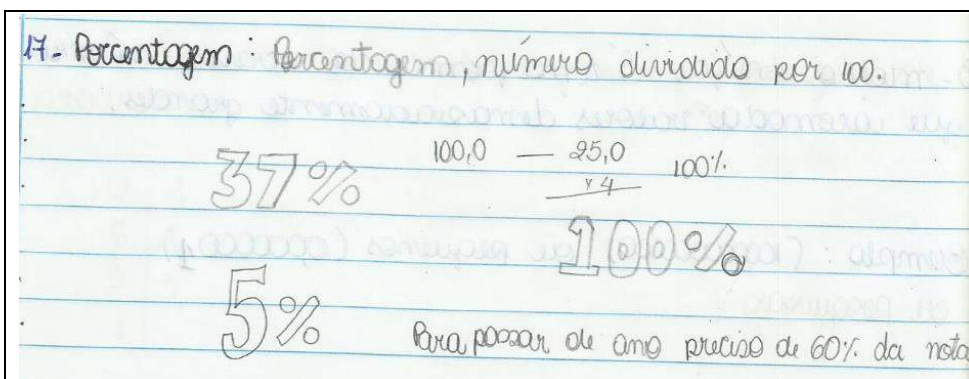 17- Porcentagem : Porcentagem, número dividido por 100.
37% 100,0 — 25,0 100%
x4
100%
5%
Para passar de ano preciso de 60% da nota